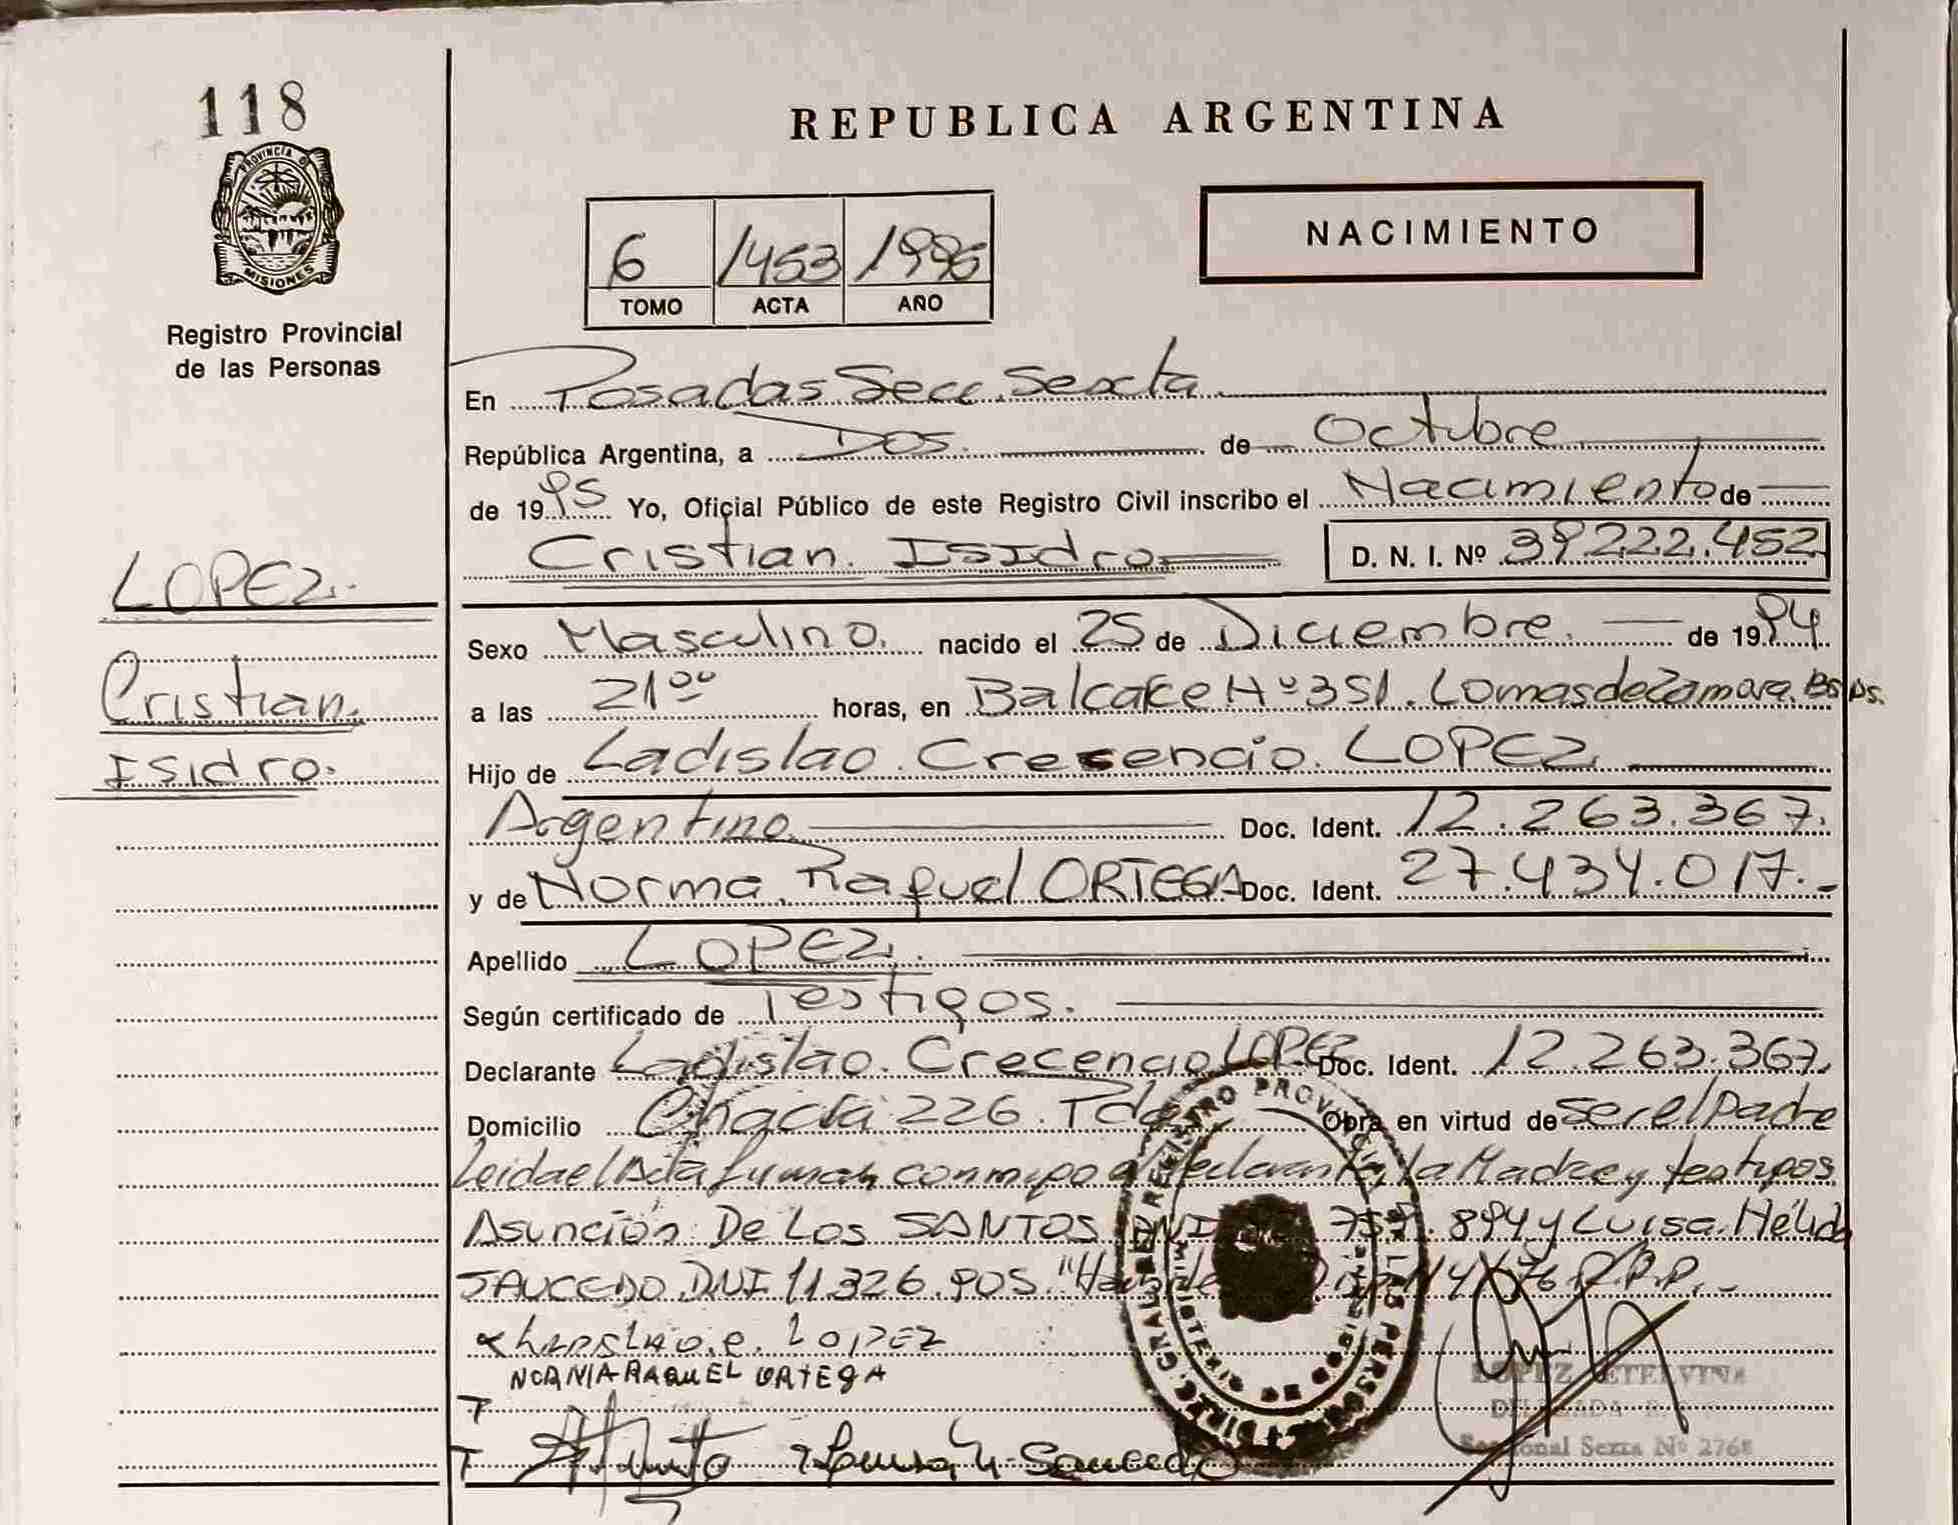 118
PROVINCIA D
MISIONES
Registro Provincial
de las Personas
REPUBLICA ARGENTINA
NACIMIENTO
6 1453 1995
TOMO ACTA AÑO
En Posadas Secc. Sexta
República Argentina, a Dos. de Octubre
de 1995 Yo, Oficial Público de este Registro Civil inscribo el Nacimiento de
Cristian. Isidro D. N. I. Nº 39.222.452
LOPEZ.
Cristian.
Isidro.
Sexo Masculino. nacido el 25 de Diciembre. de 1994
a las 21⁰⁰ horas, en Balcarce Nº 351. Lomas de Zamora. Bs. As.
Hijo de Ladislao. Crecencio. LOPEZ
Argentino Doc. Ident. 12.263.367.
y de Norma. Raquel ORTEGA Doc. Ident. 27.434.017.-
Apellido LOPEZ.
Según certificado de Testigos.
Declarante Ladislao. Crecencio LOPEZ Doc. Ident. 12.263.367.
Domicilio Chacra 226. Pdas Obra en virtud de ser el padre
Leida el Acta firman conmigo el declarante, la Madre y testigos
Asunción De Los SANTOS DNI 894 y Luisa. Hélida
SAUCEDO DNI 11.326.905. R.P.P.-
x LADISLAO. C. LOPEZ
NORMA RAQUEL ORTEGA
T
T Saucedo
LOPEZ ETELVINA
DELEGADA
Seccional Sexta Nº 2768